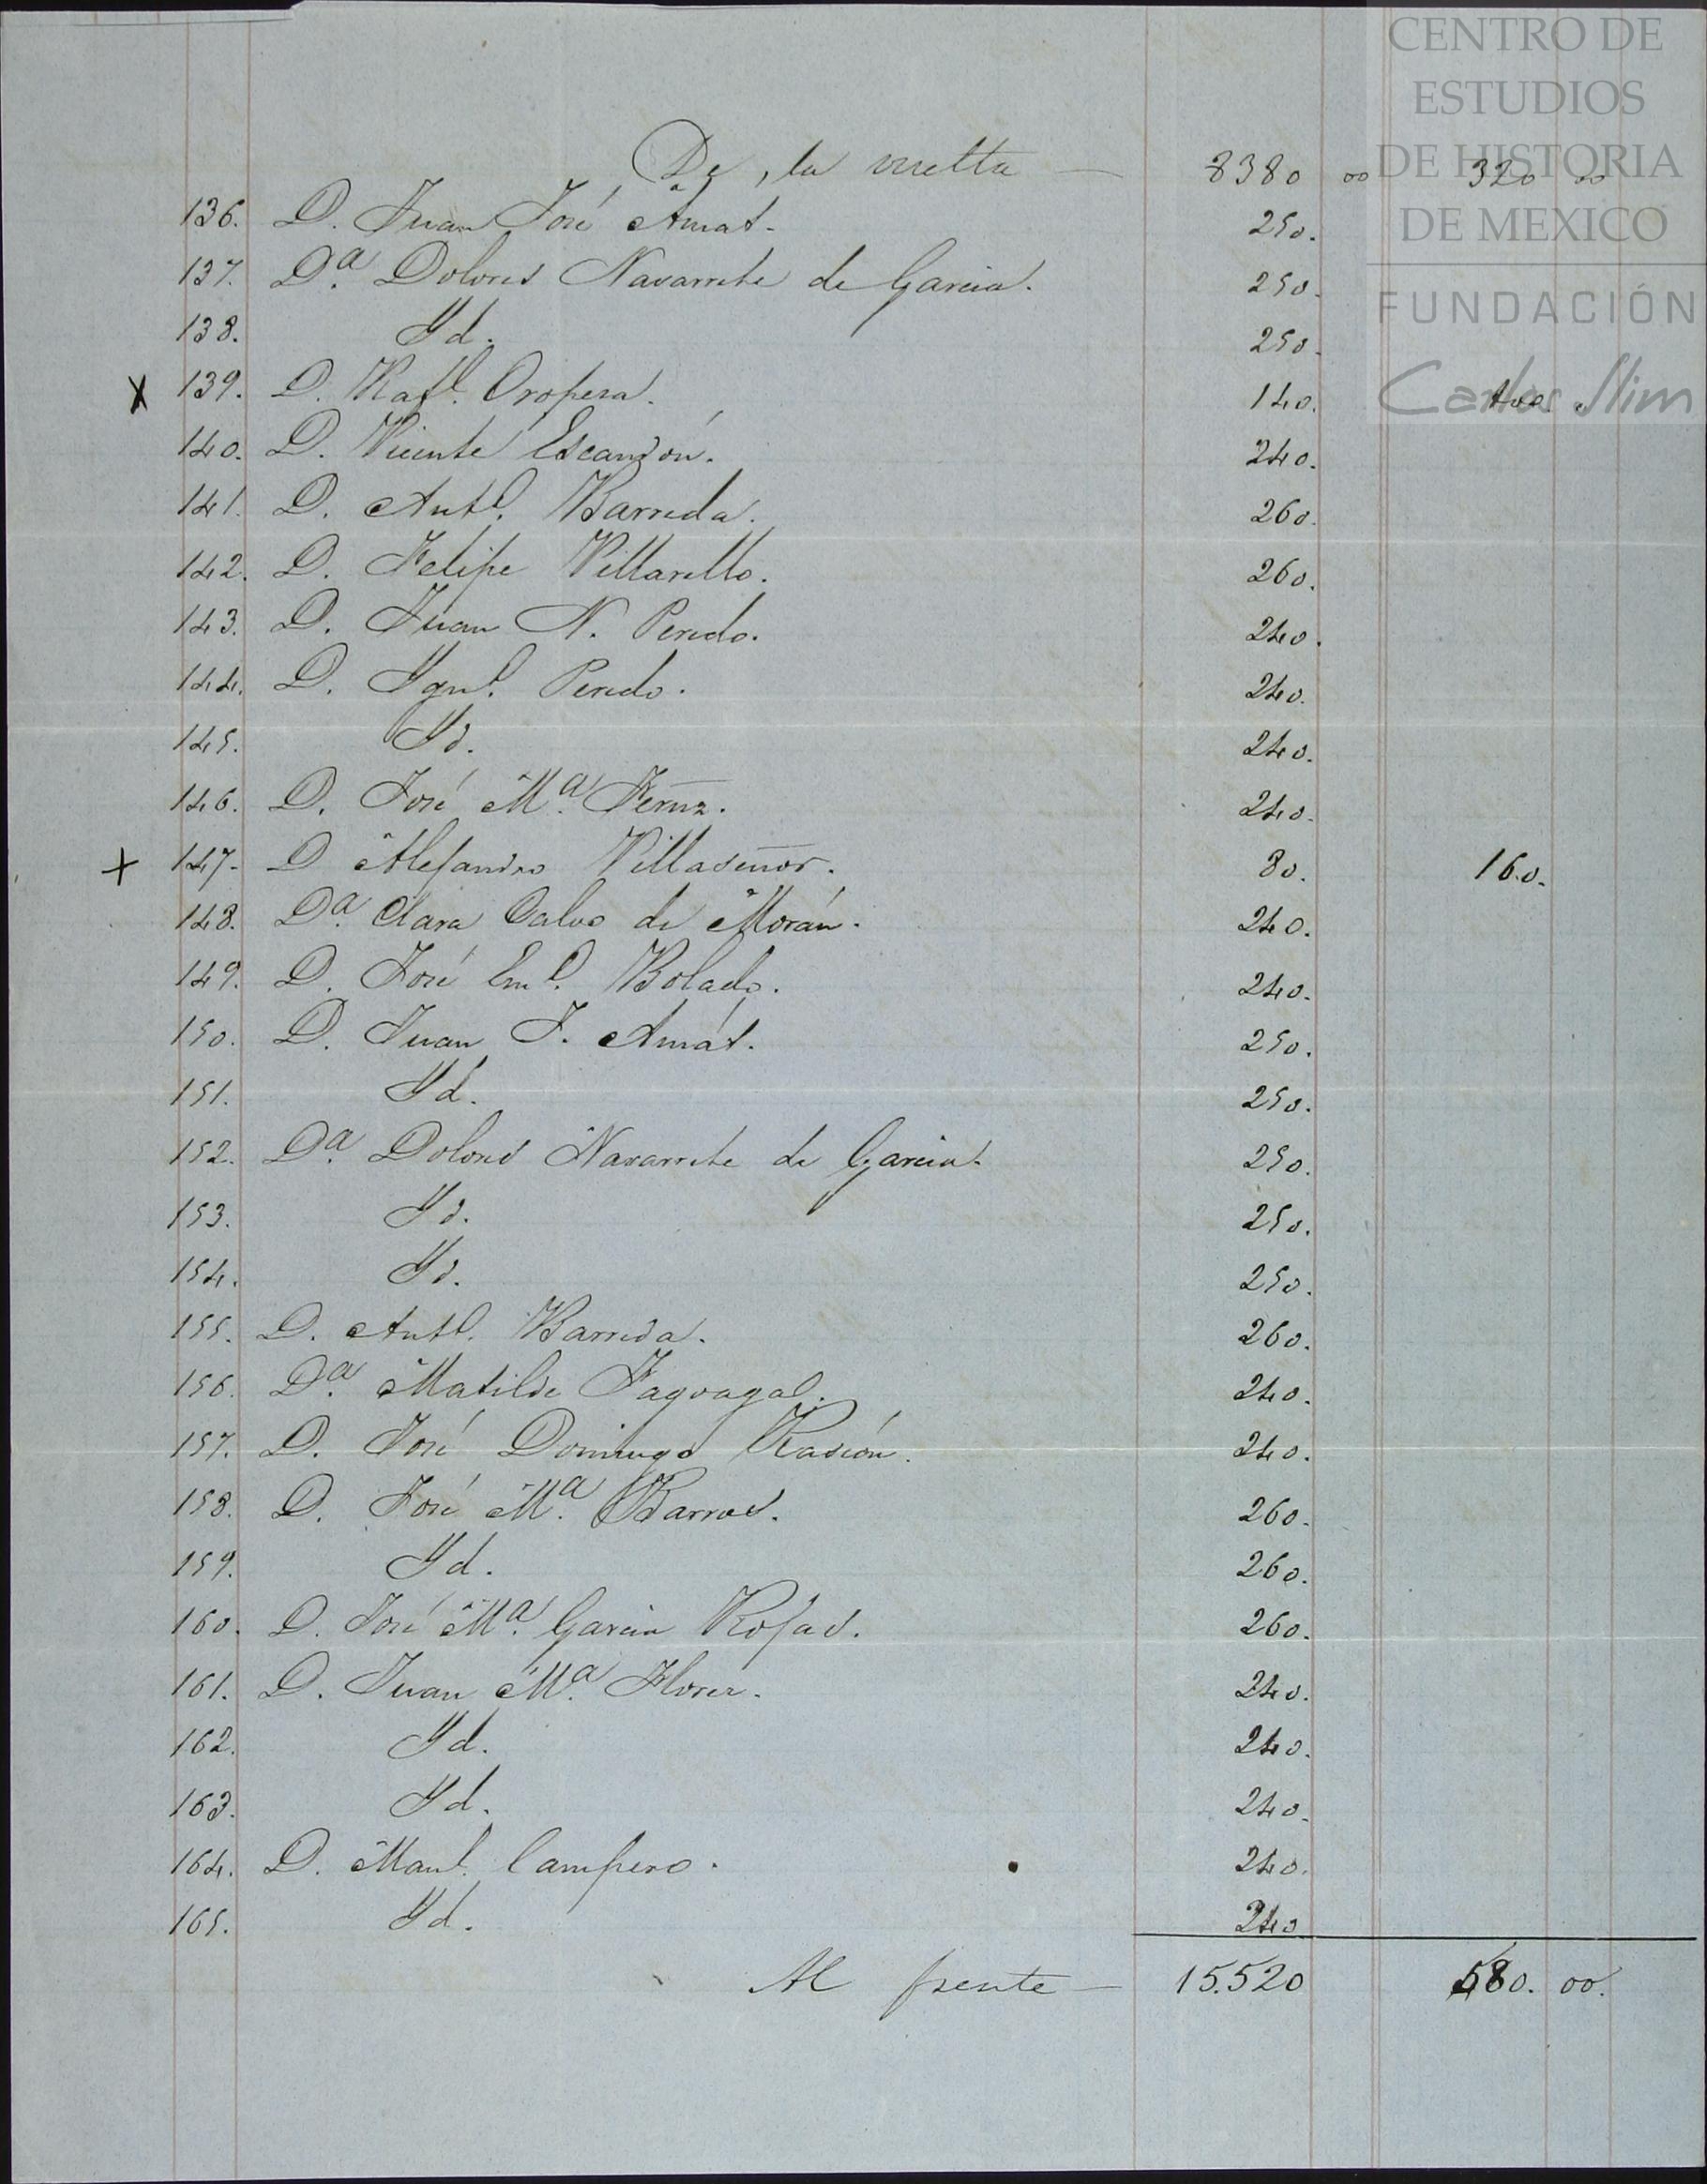 CENTRO DE
ESTUDIOS
DE HISTORIA
DE MEXICO
FUNDACIÓN
Carlos Slim
De la vuelta — 8380 00 320 00
136. D. Juan José Amat. 250.
137. Dª. Dolores Navarrete de Garcia. 250.
138. Yd. 250.
X 139. D. Rafl. Oropesa. 140. 100.
140. D. Vicente Escandón. 240.
141. D. Antº. Barreda. 260.
142. D. Felipe Villarello. 260.
143. D. Juan N. Peredo. 240.
144. D. Ygnº. Peredo. 240.
145. Yd. 240.
146. D. José Mª. Fernz. 240.
+ 147. D Alejandro Villaseñor. 80. 160.
148. Dª. Clara Calvo de Morán. 240.
149. D. José Emº. Bolado. 240.
150. D. Juan J. Amát. 250.
151. Yd. 250.
152. Dª. Dolores Navarrete de Garcia. 250.
153. Yd. 250.
154. Yd. 250.
155. D. Antº. Barreda. 260.
156. Dª. Matilde Fagoaga. 240.
157. D. José Domingo Rascón. 240.
158. D. José Mª. Barros. 260.
159. Yd. 260.
160. D. José Mª. Garcia Rojas. 260.
161. D. Juan Mª. Flores. 240.
162. Yd. 240.
163. Yd. 240.
164. D. Manl. Campero. 240.
165. Yd. 240
Al frente — 15.520 580. 00.